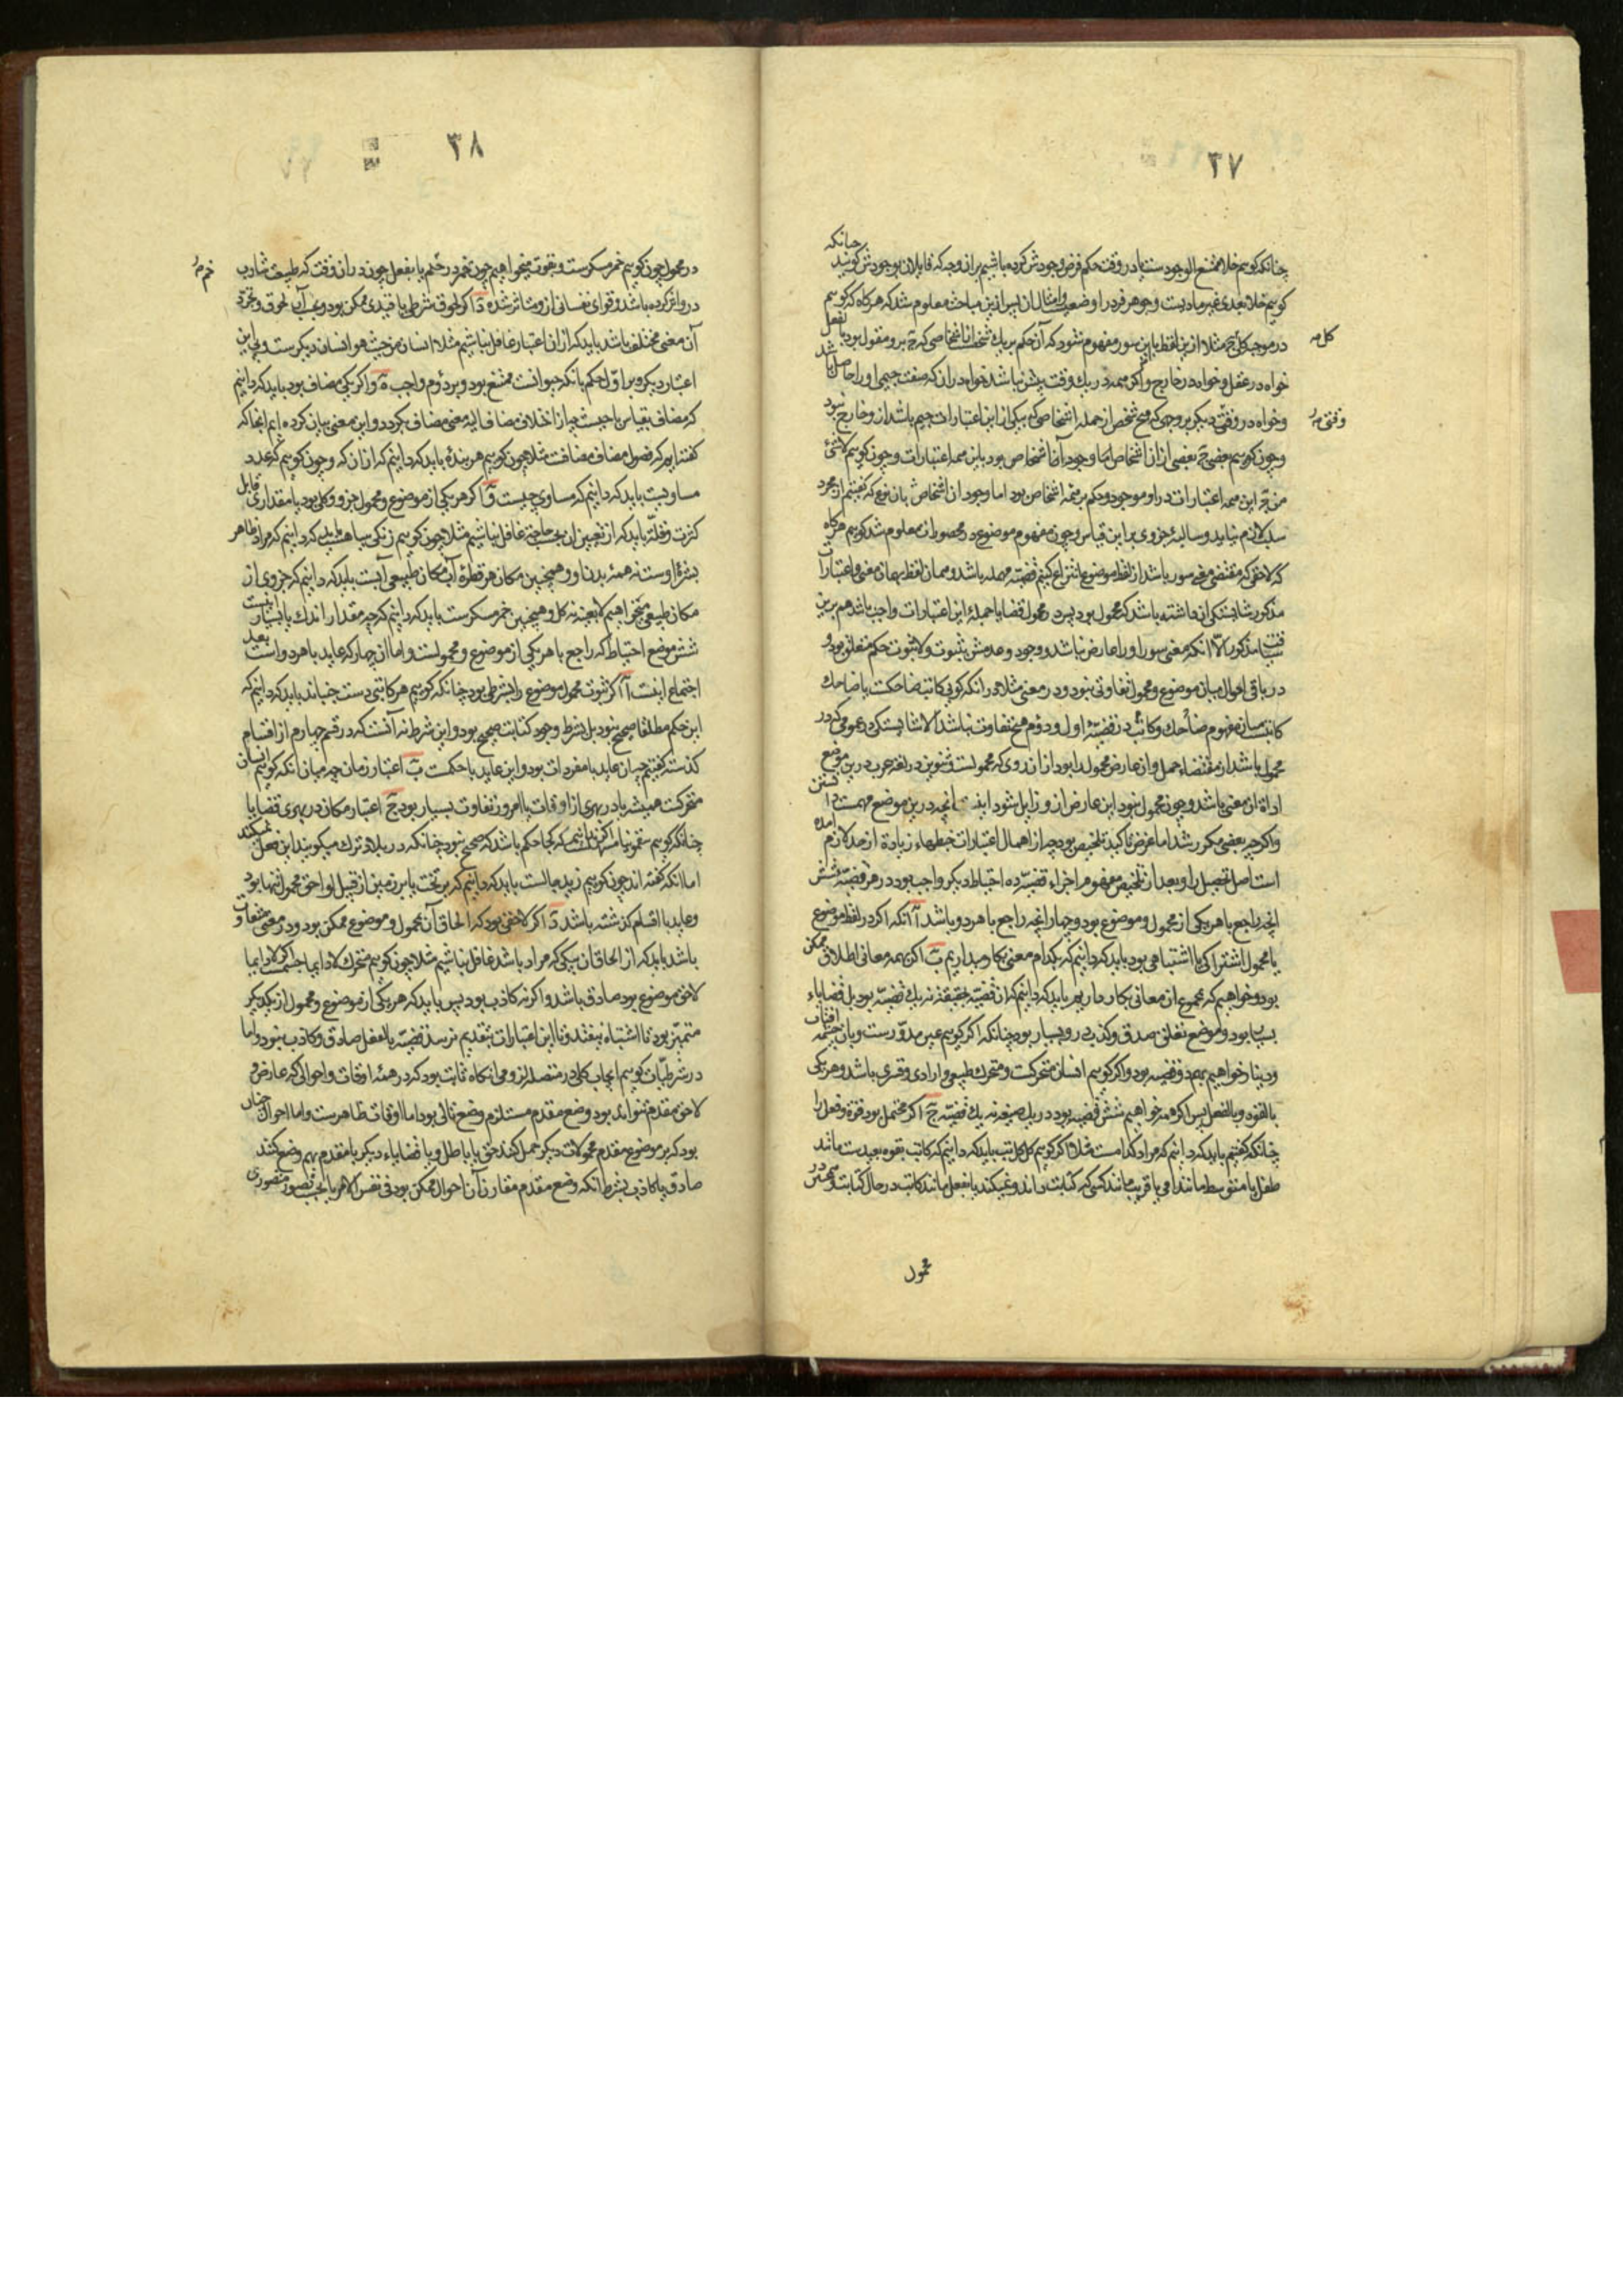 ٣٧
چنانکه
چنانکه کوییم خلا ممتنع الوجودست یا در وقت حکم فرض وجودش کرده باشیم بران وجه که قایلان بوجودش کویند
کوییم خلا بعدی غیر مادیست و جوهر فرد را وضعی و امثال ان پس ازین مباحث معلوم شد که هر کاه که کوییم
کل صح
در موجبه کلی ج مثلا ازین لفظ با این سور مفهوم شود که آن حکم بر یك شخص از اشخاصی که ج برو مقول بود بالفعل
خواه در عقل و خواه در خارج و اکر همه در یك وقت بیش نباشد خواه در ان که صفت جیمی او را حاصل باشد
وقتی صح
و خواه در وقتی دیکر بر وجهی که هیچ شخص از جمله اشخاصی که بیکی از این اعتبارات جیم باشد ازو خارج نبود
و چون کوییم بعضی ج بعضی از ان اشخاص اما وجود آن اشخاص بود باین همه اعتبارات و چون کوییم لا شئ
من ج این همه اعتبارات درو موجود و حکم بر همه اشخاص بود اما وجود ان اشخاص بان نوع که کفتیم از مجرد
سلب لازم نیاید و سالبه جزوی بر این قیاس و چون مفهوم موضوع در محصورات معلوم شد کوییم هر کاه
که لاحقی که مقتضی سور باشد از لفظ موضوع انتزاع کنیم قضیه مهمله باشد و همان لفظ بهمان معنی و اعتبارات
مذکور شایستکی ان داشته باشد که محمول بود پس در محمول قضایا جمله این اعتبارات واجب باشد هم برین
سیاقت مذکور الا انکه معنی سور او را عارض نباشد و وجود و عدمش بثبوت و لا ثبوت حکم متعلق بود و
در باقی احوال میان موضوع و محمول تفاوتی نبود و در معنی مثلا در انکه کویی کاتب ضاحکست یا ضاحك
کاتبست میان مفهوم ضاحك و کاتب در قضیه اول و دوم هیچ تفاوت نباشد الا شایستکی عمومی که در
محمول باشد از مقتضاء حمل و از عارض محمول را بود از ان روی که محمولست و تنوین در لغة عرب درین موضع
اداة ان معنی باشد و چون محمول نبود این عارض ازو زایل شود اینست انچه درین موضع مهمست دانستن
و اکرچه بعضی مکرر شد اما غرض تاکید تلخیص بود چه از اهمال اعتبارات خبطهاء زیادة از حد لازم آمده
است اصل تحصیل را و بعد از تلخیص مفهوم اجزاء قضیه ده احتیاط دیکر واجب بود در هر قضیه شش
انچه راجع با هر یکی از محمول و موضوع بود و چهار انچه راجع با هر دو باشد آ انکه اکر در لفظ موضوع
یا محمول اشتراکی یا اشتباهی بود باید که دانیم که بکدام معنی بکار میداریم ب اکر همه معانی اطلاق ممکن
بود و خواهیم که مجموع ان معانی بکار داریم باید که دانیم که ان قضیه بحقیقت نه یك قضیه بود بل قضایاء
بسیار بود و موضع تعلق صدق و کذب درو بسیار بود چنانکه اکر کوییم عین مدورست و بان چشمه آفتاب
و دینار خواهیم بهم دو قضیه بود و اکر کوییم انسان متحرکست و متحرك طبیعی و ارادی و قسری باشد و هر یکی
بالقوه و بالفعل پس اکر همه خواهیم شش قضیه بود در یك صیغه نه یك قضیه ج اکر محتمل بود قوة و فعل را
چنانکه کفتیم باید که دانیم که مراد کدامست مثلا اکر کوییم کل کاتب باید که دانیم که کاتب بقوه بعیدست مانند
طفل یا متوسط مانند امی یا قریب مانند کسی که کتابت داند و نمیکند یا بفعل مانند کاتب در حال کتابت و همچنین در
محمول
٣٨
خمر صح
در محمول چون کوییم خمر مسکرست و بقوت میخواهیم چون خمر در خم یا بفعل چون در ان وقت که طبیعت شارب
درو اثر کرده باشد و قوای نفسانی ازو متاثر شده د اکر لحوق شرطی یا قیدی ممکن بود و بحسب آن لحوق و تجرد
آن معنی مختلف باشد باید که از ان اعتبار غافل نباشیم مثلا انسان من حیث هو انسان دیکرست و بی این
اعتبار دیکر و بر اول حکم بانکه حیوانست ممتنع بود و بر دوم واجب ه و اکر یکی مضاف بود باید که دانیم
که مضاف بقیاس با چیست چه از اختلاف مضاف الیه معنی مضاف بکردد و این معنی بیان کرده ایم انجا که
کفته ایم که فصول مضاف مضافست مثلا چون کوییم هر بندهٔ باید که دانیم که از ان که و چون کوییم که عدد
مساویست باید که دانیم که مساوی چیست و اکر هر یکی از موضوع و محمول جزو و کلی بود یا مقداری قابل
کثرت و قلة باید که از تعیین ان بحسب حاجة غافل نباشیم مثلا چون کوییم زنکی سیاهست باید که دانیم که مراد ظاهر
بشرهٔ اوست نه همهٔ بدن او و همچنین مکان هر قطرهٔ آب مکان طبیعی آبست باید که دانیم که جزوی از
مکان طبیعی میخواهیم لا بعینه نه کل و همچنین خمر مسکرست باید که دانیم که چه مقدار اندك یا بسیار اینست
شش موضع احتیاط که راجع با هر یکی از موضوع و محمولست و اما ان چهار که عاید با هر دو است بعد
اجتماع اینست آ اکر ثبوت محمول موضوع را بشرطی بود چنانکه کوییم هر کاتبی دست جنباند باید که دانیم که
این حکم مطلقا صحیح نبود بل بشرط وجود کتابت صحیح بود و این شرط نه آنست که در قسم چهارم از اقسام
کذشته کفتیم چه ان عاید با مفردات بود و این عاید با حکمست ب اعتبار زمان چه میان انکه کوییم انسان
متحرکست همیشه یا در بهری از اوقات یا امروز تفاوت بسیار بود ج اعتبار مکان در بهری قضایا
چنانکه کوییم سقمونیا مسهلست اکر ندانیم که کجا حکم باشد که صحیح نبود چنانکه در بلاد ترك میکویند این فعل نمیکند
اما انکه کفته اند چون کوییم زید جالست باید که دانیم که بر تخت یا بر زمین از قبیل لواحق محمول تنها بود
و عاید با اقسام کذشته باشد د اکر لاحقی بود که الحاق آن بمحمول و موضوع ممکن بود و در معنی متفاوت
باشد باید که از الحاق ان بیکی که مراد باشد غافل نباشیم مثلا چون کوییم متحرك لا دایما جسمست اکر لا دایما
لاحق موضوع بود صادق باشد و اکر نه کاذب بود پس باید که هر یکی از موضوع و محمول از یکدیکر
متمیز بود تا اشتباه نیفتد و تا این اعتبارات بتقدیم نرسد قضیه بالفعل صادق و کاذب نبود و اما
در شرطیات کوییم ایجاب کلی در متصله لزومی انکاه ثابت بود که در همهٔ اوقات و احوالی که عارض و
لاحق مقدم تواند بود وضع مقدم مستلزم وضع تالی بود اما اوقات ظاهرست و اما احوال چنان
بود که بر موضوع مقدم محمولات دیکر حمل کنند حق یا باطل و یا قضایاء دیکر با مقدم بهم وضع کنند
صادق یا کاذب بشرط انکه وضع مقدم مقارن آن احوال ممکن بود فی نفس الامر یا بحسب تصور متصوری